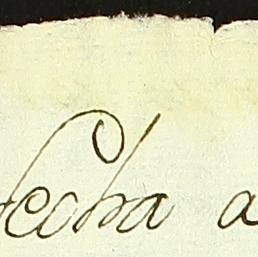 fecha a